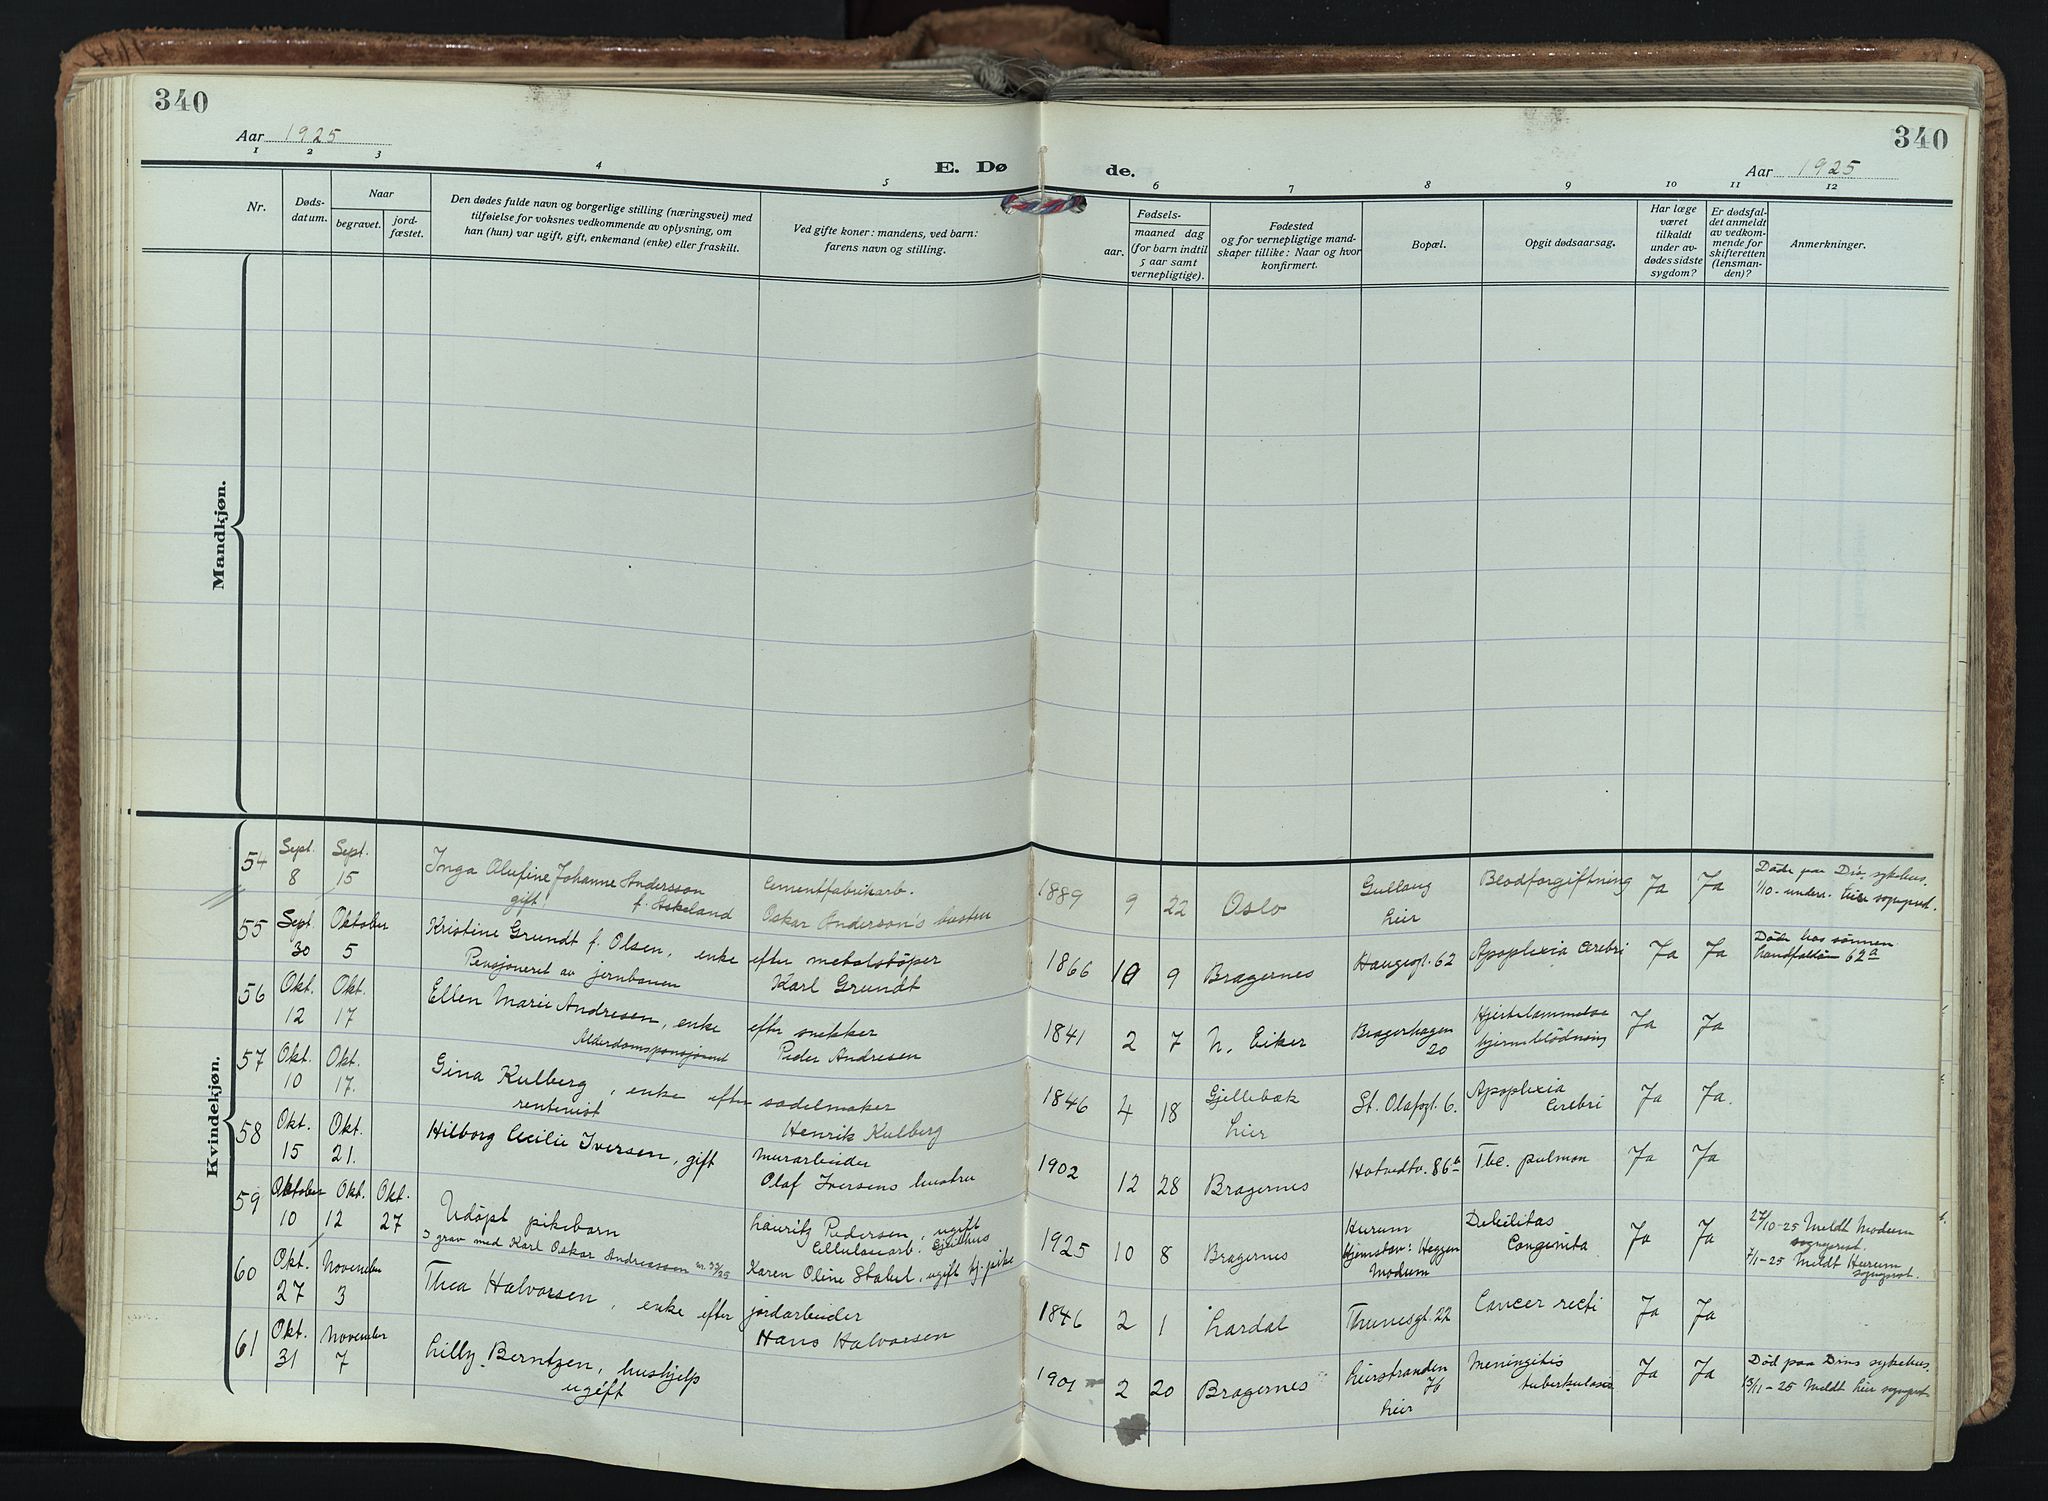 340
340
Aar 1925
Aar 1925
E. Dø
de.
1 2 3 4 5
6 7 8 9 10 11 12
Nr.
Døds-
datum.
Naar
begravet.
jord-
fæstet.
Den dødes fulde navn og borgerlige stilling (næringsvei) med
tilføielse for voksnes vedkommende av oplysning, om
han (hun) var ugift, gift, enkemand (enke) eller fraskilt.
Ved gifte koner: mandens, ved barn:
farens navn og stilling.
Fødsels-
aar.
maaned dag
(for barn indtil
5 aar samt
vernepligtige).
Fødested
og for vernepligtige mand-
skaper tillike: Naar og hvor
konfirmert.
Bopæl.
Opgit dødsaarsag.
Har læge
været
tilkaldt
under av-
dødes sidste
sygdom?
Er dødsfal-
det anmeldt
av vedkom-
mende for
skifteretten
(lensman-
den)?
Anmerkninger.
Mandkjøn.
Kvindekjøn.
54 Sept. 8 Sept. 15
Inga Olufine Johanne Andersson
gift f. Askeland
Cementfabrikarb.
Oskar Andersson's hustru
1889 9 22 Oslo
Gullaug
Lier
Blodforgiftning Ja Ja
Døde paa Drs. sykehus.
1/10- under. Lier sogneprst.
55 Sept. 30 Oktober 5
Kristine Grundt f. Olsen, enke efter metalstøper
Pensjoneret av jernbanen Karl Grundt
1866 10 9 Bragernes Haugesgt. 62 Apoplexia cerebri Ja Ja
Døde hos sönnen
62a
56 Okt. 12 Okt. 17
Ellen Marie Andresen, enke efter snekker
Alderdomspensjonist Peder Andresen
1841 2 7 N. Eiker
Bragerhagen
20
Hjertelammelse
hjerneblödning
Ja Ja
57 Okt. 10 Okt. 17.
Gina Kulberg, enke efter sadelmaker
rentenist Henrik Kulberg
1846 4 18
Gjellebæk
Lier
St. Olafsgt. 6.
Apoplexia
Cerebri
Ja Ja.
58 Okt. 15 Okt. 21.
Hilborg Cecilie Iversen, gift
Murarbeider
Olaf Iversens hustru
1902 12 28 Bragernes Hotvedtv. 86b Tbc. pulmon Ja Ja
59 Oktober 10 Okt. 12 Okt. 27
Udöpt pikebarn
I grav med Karl Oskar Andreassen nr. 52/25
Lauritz Pedersen, ugift
Cellulosearb. Gjeithus
Karen Oline Stabel, ugift tj. pike
1925 10 8 Bragernes
Hurum
Hjemstavn: Heggen
Modum
Debilitas
Congenita
Ja Ja
27/10-25 Meldt Modum
sogneprst.
7/1-25 Meldt Hurum
sogneprst.
60 Okt. 27 November 3
Thea Halvorsen, enke efter jordarbeider
Hans Halvorsen
1846 2 1 Lardal Thunesgt. 22 Cancer recti Ja Ja
61 Okt. 31 November 7
Lilly Berntzen, hushjelp
ugift
1901 2 20 Bragernes
Lierstranden
76
Lier
Meningitis
tuberkulosis
Ja Ja
Död paa Drms sykehus.
13/11-25 Meldt Lier sogneprst.